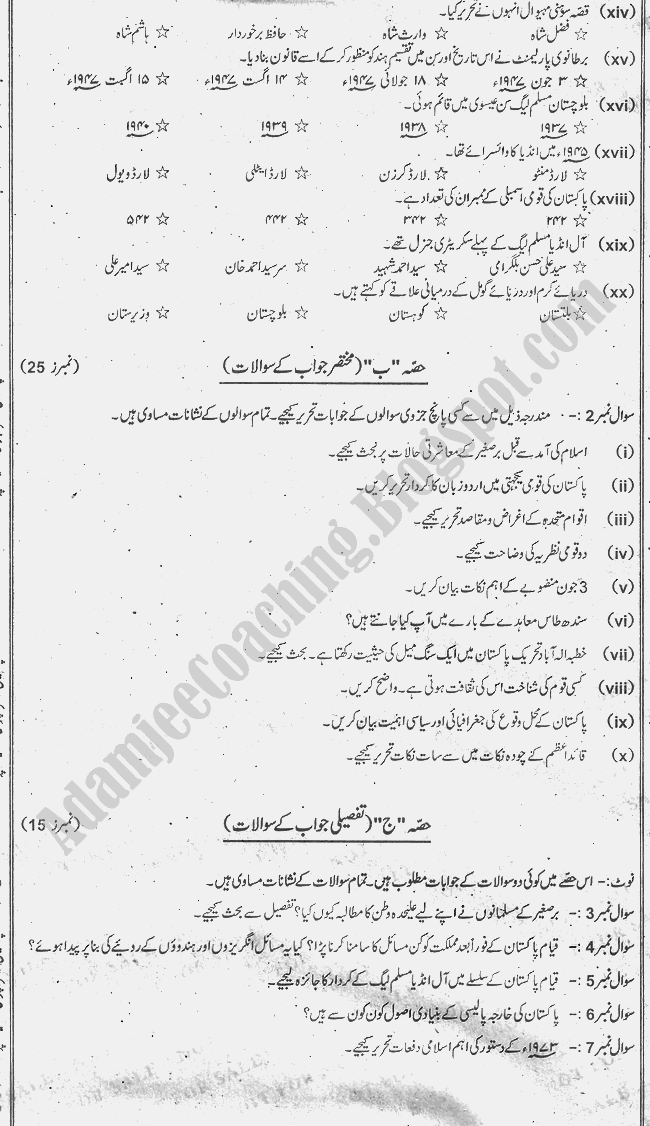 (xiv) قصہ سوہنی مہیوال انہوں نے تحریر کیا۔
☆ فضل شاہ ☆ وارث شاہ ☆ حافظ برخوردار ☆ ہاشم شاہ
(xv) برطانوی پارلیمنٹ نے اس تاریخ اور سن میں تقسیم ہند کو منظور کر کے اسے قانون بنا دیا۔
☆ ۳ جون ۱۹۴۷ء ☆ ۱۸ جولائی ۱۹۴۷ء ☆ ۱۴ اگست ۱۹۴۷ء ☆ ۱۵ اگست ۱۹۴۷ء
(xvi) بلوچستان مسلم لیگ سن عیسوی میں قائم ہوئی۔
☆ ۱۹۳۷ ☆ ۱۹۳۸ ☆ ۱۹۳۹ ☆ ۱۹۴۰
(xvii) ۱۹۴۵ء میں انڈیا کا وائسرائے تھا۔
☆ لارڈ منٹو ☆ لارڈ کرزن ☆ لارڈ ایٹلی ☆ لارڈ ویول
(xviii) پاکستان کی قومی اسمبلی کے ممبران کی تعداد ہے۔
☆ ۲۴۲ ☆ ۳۴۲ ☆ ۴۴۲ ☆ ۵۴۲
(xix) آل انڈیا مسلم لیگ کے پہلے سکریٹری جنرل تھے۔
☆ سید علی حسن بلگرامی ☆ سید احمد شہید ☆ سرسید احمد خان ☆ سید امیر علی
(xx) دریائے کرم اور دریائے گومل کے درمیانی علاقے کو کہتے ہیں۔
☆ بلتستان ☆ کوہستان ☆ بلوچستان ☆ وزیرستان
حصّہ "ب" (مختصر جواب کے سوالات) (نمبرز 25)
سوال نمبر 2 :- مندرجہ ذیل میں سے کسی پانچ جزوی سوالوں کے جوابات تحریر کیجیے۔ تمام سوالوں کے نشانات مساوی ہیں۔
(i) اسلام کی آمد سے قبل برصغیر کے معاشرتی حالات پر بحث کیجیے۔
(ii) پاکستان کی قومی یکجہتی میں اردو زبان کا کردار تحریر کریں۔
(iii) اقوام متحدہ کے اغراض و مقاصد تحریر کیجیے۔
(iv) دو قومی نظریہ کی وضاحت کیجیے۔
(v) 3 جون منصوبے کے اہم نکات بیان کریں۔
(vi) سندھ طاس معاہدے کے بارے میں آپ کیا جانتے ہیں؟
(vii) خطبہ الہ آباد تحریک پاکستان میں ایک سنگ میل کی حیثیت رکھتا ہے۔ بحث کیجیے۔
(viii) کسی قوم کی شناخت اس کی ثقافت ہوتی ہے۔ واضح کریں۔
(ix) پاکستان کے محل وقوع کی جغرافیائی اور سیاسی اہمیت بیان کریں۔
(x) قائد اعظم کے چودہ نکات میں سے سات نکات تحریر کیجیے۔
حصّہ "ج" (تفصیلی جواب کے سوالات) (نمبرز 15)
نوٹ :- اس حصّے میں کوئی دو سوالات کے جوابات مطلوب ہیں۔ تمام سوالات کے نشانات مساوی ہیں۔
سوال نمبر 3 :- برصغیر کے مسلمانوں نے اپنے لیے علیحدہ وطن کا مطالبہ کیوں کیا؟ تفصیل سے بحث کیجیے۔
سوال نمبر 4 :- قیام پاکستان کے فوراً بعد مملکت کو کن مسائل کا سامنا کرنا پڑا؟ کیا یہ مسائل انگریزوں اور ہندوؤں کے رویئے کی بنا پر پیدا ہوئے؟
سوال نمبر 5 :- قیام پاکستان کے سلسلے میں آل انڈیا مسلم لیگ کے کردار کا جائزہ لیجیے۔
سوال نمبر 6 :- پاکستان کی خارجہ پالیسی کے بنیادی اصول کون کون سے ہیں؟
سوال نمبر 7 :- ۱۹۷۳ء کے دستور کی اہم اسلامی دفعات تحریر کیجیے۔
AdamjeeCoaching.Blogspot.com